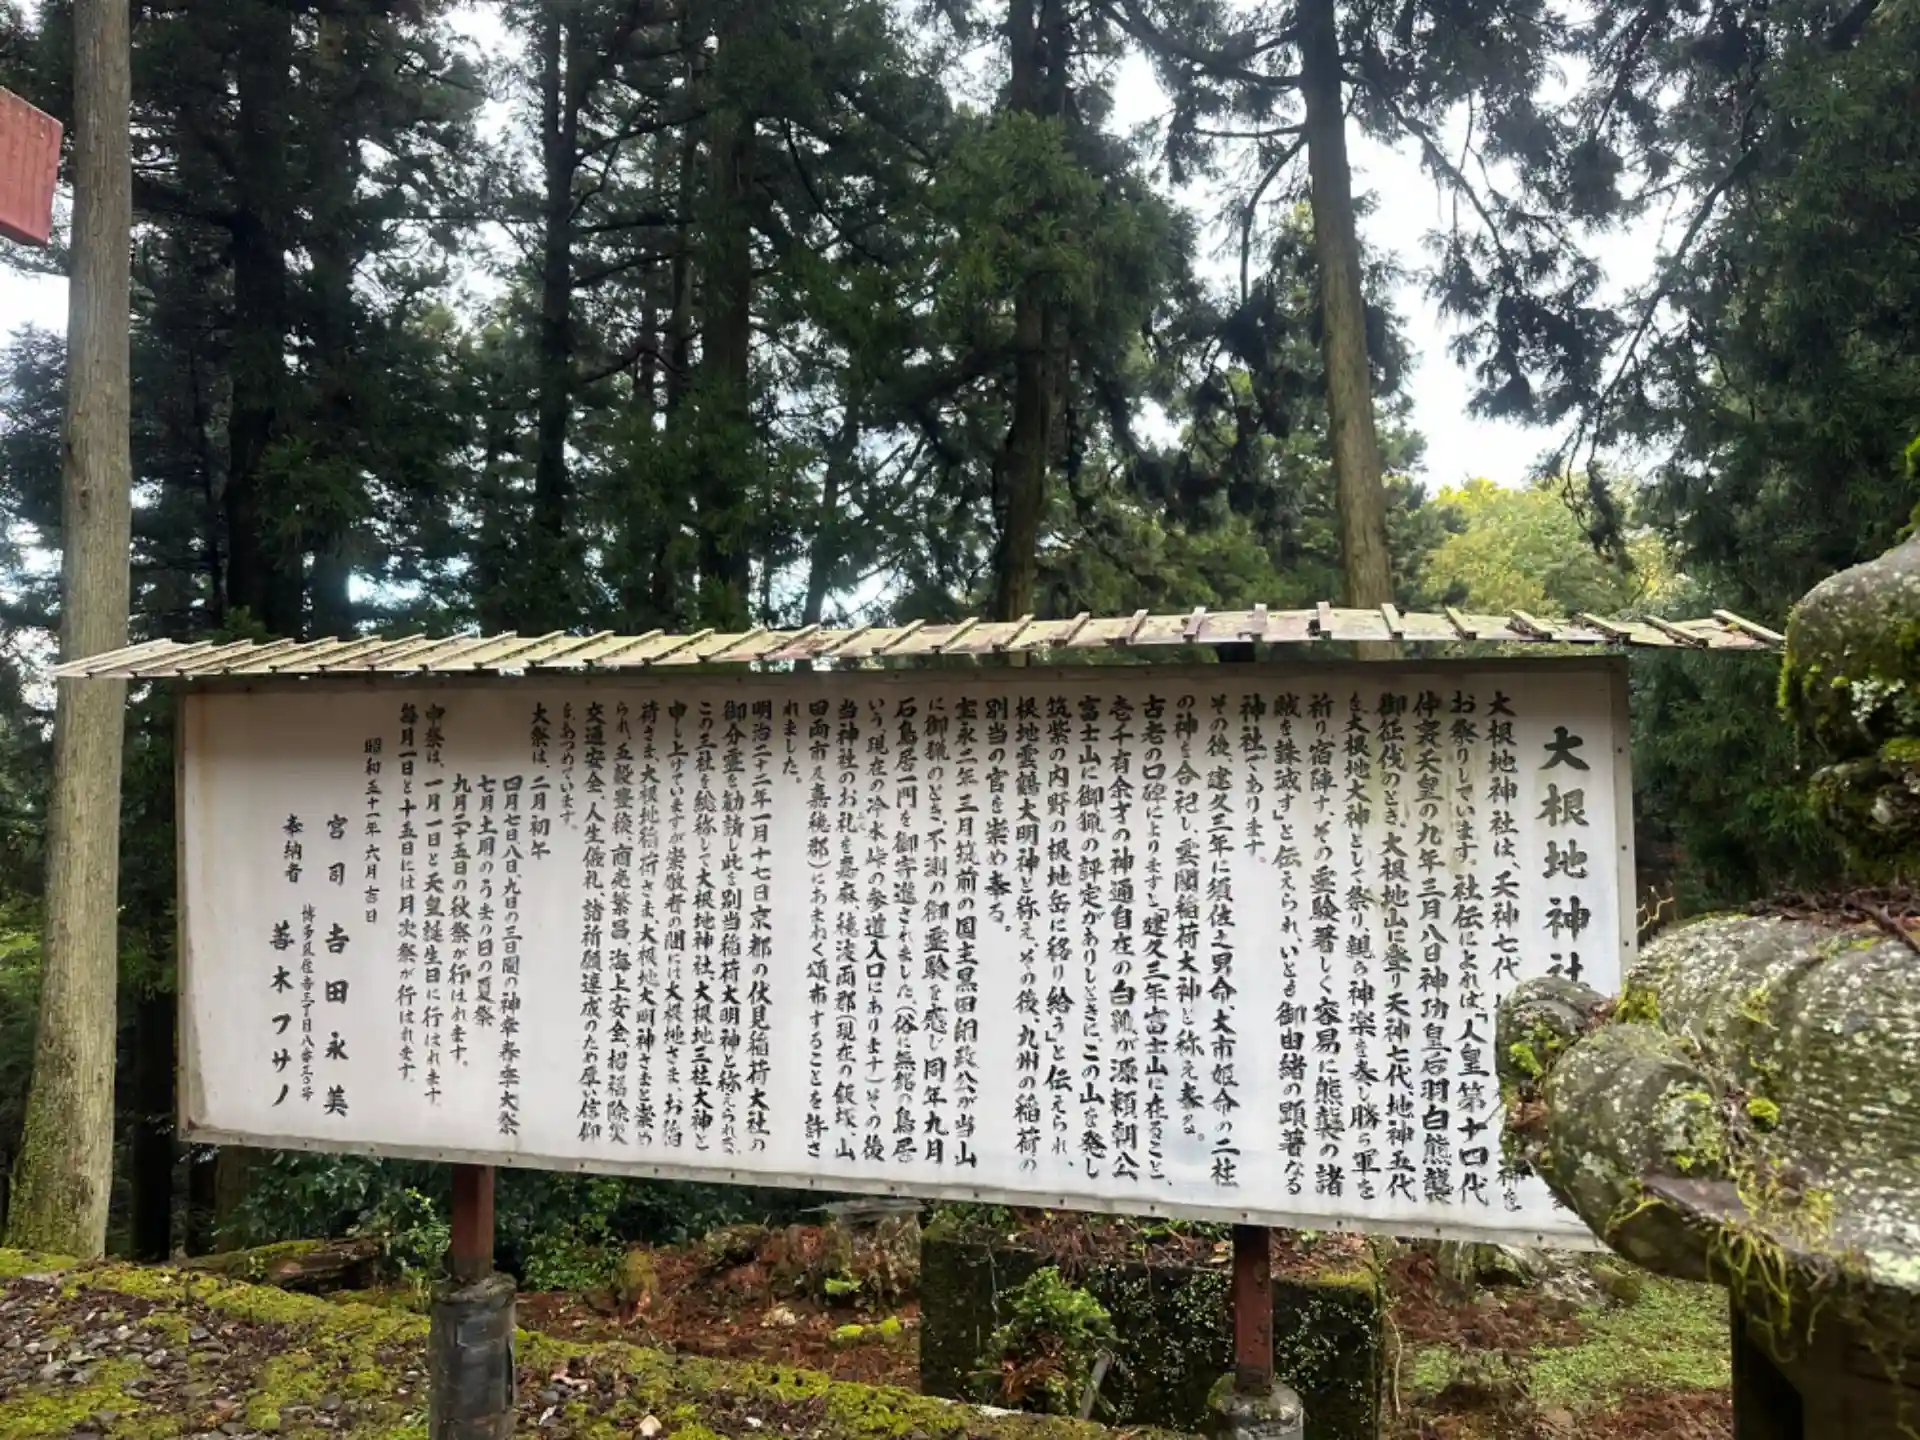 大根地神社
大根地神社は、天神七代
神を
お祭りしています。社伝によれば「人皇第十四代
仲哀天皇の九年三月八日神功皇后羽白熊襲
御征伐のとき、大根地山に登り天神七代地神五代
を大根地大神として祭り、親ら神楽を奏し勝ら軍を
祈り宿陣す、その霊験著しく容易に熊襲の諸
賊を誅滅す」と伝えられ、いとも御由緒の顕著なる
神社であります。
その後、建久三年に須佐之男命、大市姫命の二柱
の神を合祀し、雲閣稲荷大神と称え奉る。
古老の口碑によりますと「建久三年富士山に在ること、
壱千有余才の神通自在の白狐が源頼朝公
富士山に御猟の評定がありしときにこの山を発し
筑紫の内野の根地岳に移り給う」と伝えられ、
根地雲鶴大明神と称え、その後、九州の稲荷の
別当の宮を崇め奉る。
宝永二年三月筑前の国主黒田綱政公が当山
に御猟のとき、不測の御霊験を感じ同年九月
石鳥居一門を御寄進されました、(俗に無銘の鳥居
いう、現在の冷水峠の参道入口にあります)その後
当神社のお礼を嘉麻、穂波両郡(現在の飯塚、山
田両市及嘉穂郡)にあまねく頒布することを許さ
れました。
明治二十二年一月十七日京都の伏見稲荷大社の
御分霊を勧請し此を別当稲荷大明神と称えられ、
この三社を総称して大根地神社、大根地三社大神と
申し上げていますが崇敬者の間には大根地さま、お稲
荷さま、大根地稲荷さま、大根地大明神さまと崇め
られ、五穀豊穣、商売繁昌、海上安全、招福除災
交通安全、人生儀礼、諸祈願達成のため厚い信仰
をあつめています。
大祭は、二月初午
四月七日八日、九日の三日間の神幸春季大祭
七月土用のうまの日の夏祭
九月二十五日の秋祭が行はれます。
中祭は、一月一日と天皇誕生日に行はれます。
毎月一日と十五日には月次祭が行はれます。
昭和五十一年六月吉日
宮司 吉田永美
博多区住吉三丁目八番五〇号
奉納者 善木フサノ